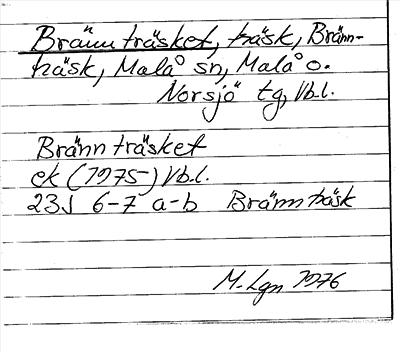 Brännträsket, träsk, Bränn-
träsk, Malå sn, Malå o.
Norsjö tg, Vb.l.
Brännträsket
ek (1975) Vb.l.
23J 6-7 a-b Brännträsk
M. Lgn 1976